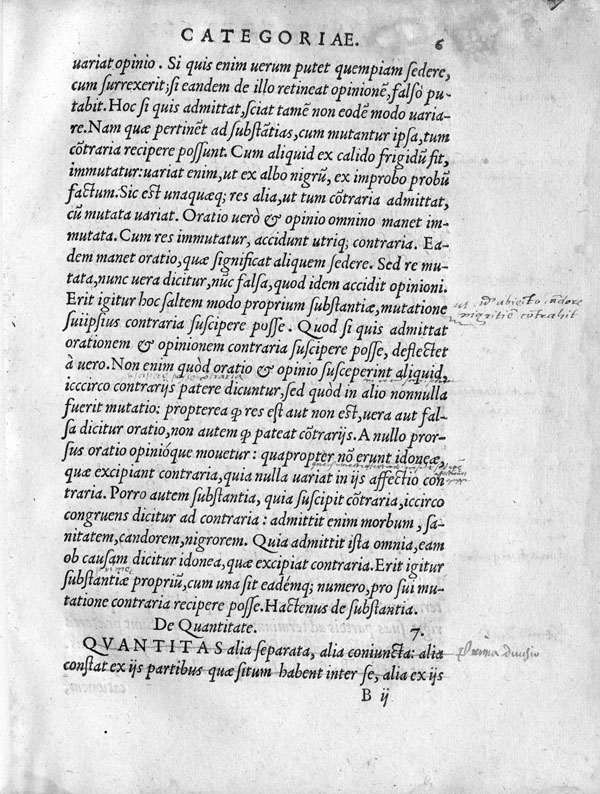 CATEGORIAE. 6
uariat opinio. Si quis enim uerum putet quempiam sedere,
cum surrexerit; si eandem de illo retineat opinionē, falsò pu-
tabit. Hoc si quis admittat, sciat tamē non eodē modo uaria-
re. Nam quæ pertinēt ad substātias, cum mutantur ipsa, tum
cōtraria recipere possunt. Cum aliquid ex calido frigidū fit,
immutatur: uariat enim, ut ex albo nigrū, ex improbo probū
factum. Sic est unaquæq; res alia, ut tum cōtraria admittat,
cū mutata uariat. Oratio uerò & opinio omnino manet im-
mutata. Cum res immutatur, accidunt utriq; contraria. Ea-
dem manet oratio, quæ significat aliquem sedere. Sed re mu-
tata, nunc uera dicitur, nūc falsa, quod idem accidit opinioni.
Erit igitur hoc saltem modo proprium substantiæ, mutatione
suiipsius contraria suscipere posse. Quod si quis admittat
orationem & opinionem contraria suscipere posse, deflectet
à uero. Non enim quòd oratio & opinio susceperint aliquid,
icccirco contrarijs patere dicuntur, sed quòd in alio nonnulla
fuerit mutatio; propterea ꝙ res est aut non est, uera aut fal-
sa dicitur oratio, non autem ꝙ pateat cōtrarijs. A nullo pror-
sus oratio opinióque mouetur: quapropter nō erunt idoneæ,
quæ excipiant contraria, quia nulla uariat in ijs affectio con
traria. Porro autem substantia, quia suscipit cōtraria, iccirco
congruens dicitur ad contraria: admittit enim morbum, sa-
nitatem, candorem, nigrorem. Quia admittit ista omnia, eam
ob causam dicitur idonea, quæ excipiat contraria. Erit igitur
substantiæ propriū, cum una sit eadémq; numero, pro sui mu-
tatione contraria recipere posse. Hactenus de substantia.
De Quantitate. 7.
QVANTITAS alia separata, alia coniuncta: alia
prima diuisio
constat ex ijs partibus quæ situm habent inter se, alia ex ijs
B ij